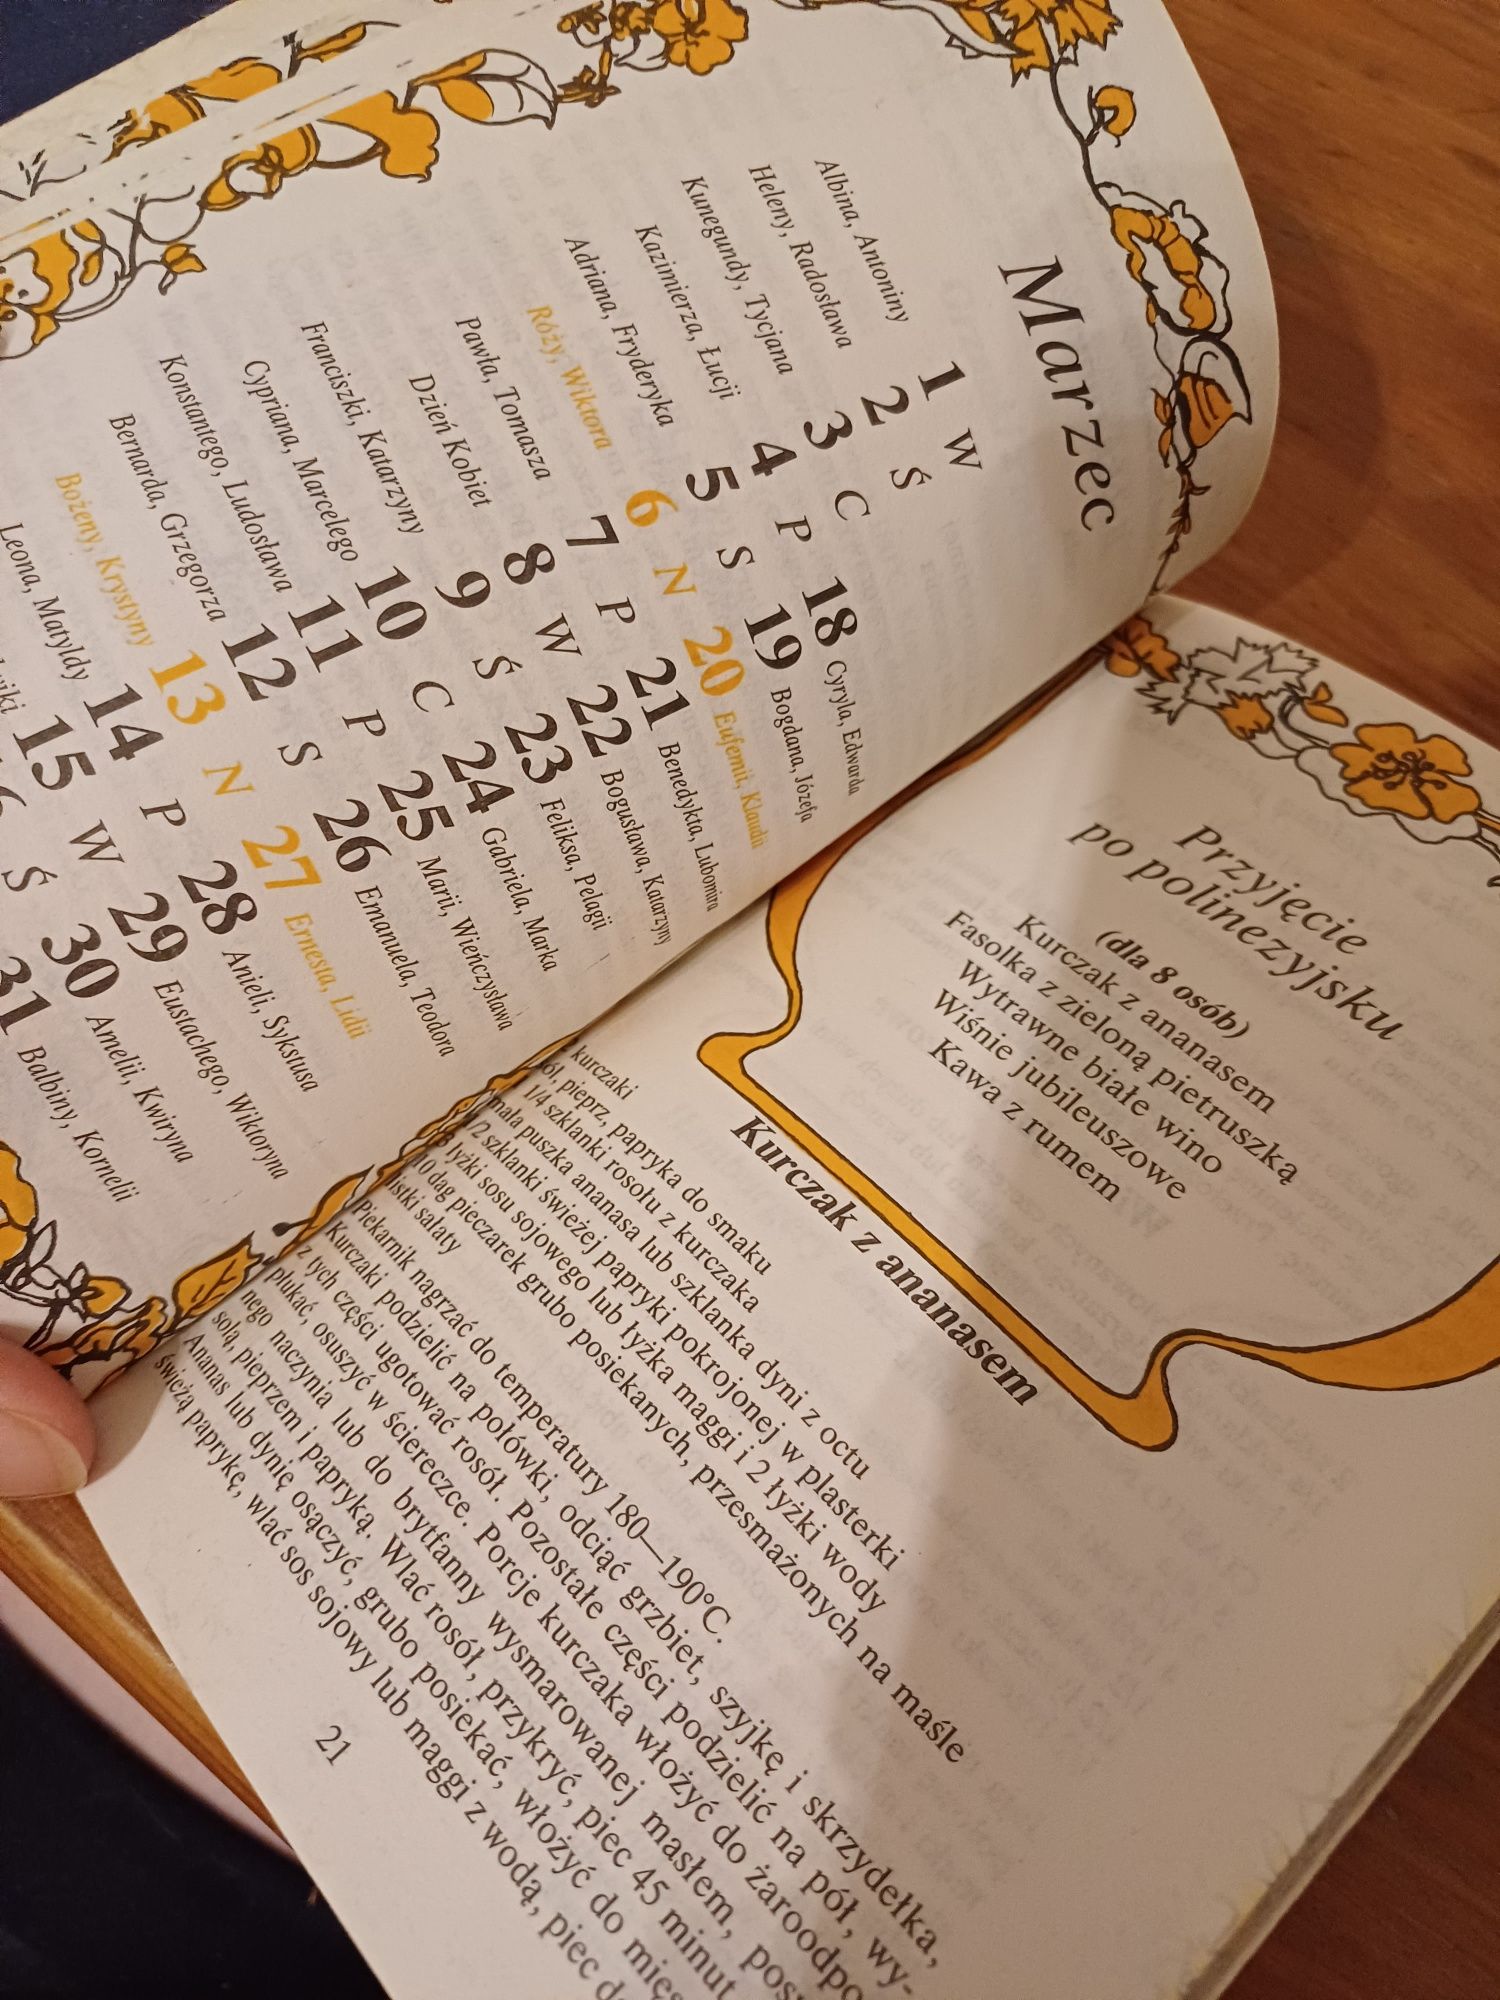 Marzec
Albina, Antoniny 1 W
Heleny, Radosława 2 Ś
Kunegundy, Tycjana 3 C
Kazimierza, Łucji 4 P
Adriana, Fryderyka 5 S
Róży, Wiktora 6 N
Pawła, Tomasza 7 P
Dzień Kobiet 8 W
Franciszki, Katarzyny 9 Ś
Cypriana, Marcelego 10 C
Konstantego, Ludosława 11 P
Bernarda, Grzegorza 12 S
Bożeny, Krystyny 13 N
Leona, Matyldy 14 P
15 W
Ś
18 Cyryla, Edwarda
19 Bogdana, Józefa
20 Eufemii, Klaudii
21 Benedykta, Lubomira
22 Bogusława, Katarzyny
23 Feliksa, Pelagii
24 Gabriela, Marka
25 Marii, Wieńczysława
26 Emanuela, Teodora
27 Ernesta, Lidii
28 Anieli, Sykstusa
29 Eustachego, Wiktoryna
30 Amelii, Kwiryna
31 Balbiny, Kornelii
Przyjęcie
po polinezyjsku
(dla 8 osób)
Kurczak z ananasem
Fasolka z zieloną pietruszką
Wytrawne białe wino
Wiśnie jubileuszowe
Kawa z rumem
Kurczak z ananasem
kurczaki
pieprz, papryka do smaku
1/4 szklanki rosołu z kurczaka
mała puszka ananasa lub szklanka dyni z octu
1/2 szklanki świeżej papryki pokrojonej w plasterki
łyżki sosu sojowego lub łyżka maggi i 2 łyżki wody
10 dag pieczarek grubo posiekanych, przesmażonych na maśle
listki sałaty
Piekarnik nagrzać do temperatury 180—190°C.
Kurczaki podzielić na połówki, odciąć grzbiet, szyjkę i skrzydełka,
z tych części ugotować rosół. Pozostałe części podzielić na pół, wy-
płukać, osuszyć w ściereczce. Porcje kurczaka włożyć do żaroodpo
nego naczynia lub do brytfanny wysmarowanej masłem,
solą, pieprzem i papryką. Wlać rosół, przykryć, piec 45 minut
Ananas lub dynię osączyć, grubo posiekać, włożyć do
świeżą paprykę, wlać sos sojowy lub maggi z wodą, piec
21